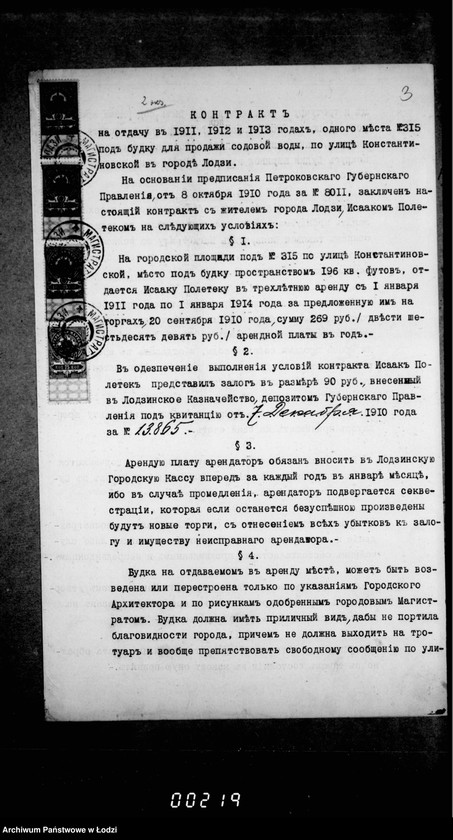 2 экз.
3
КОНТРАКТЪ
на отдачу въ 1911, 1912 и 1913 годахъ, одного мѣста №315
подъ будку для продажи содовой воды, по улицѣ Константи-
новской въ городѣ Лодзи.
На основаніи предписанія Петроковскаго Губернскаго
Правленія, отъ 8 октября 1910 года за № 8011, заключенъ на-
стоящій контрактъ съ жителемъ города Лодзи, Исаакомъ Поле-
текомъ на слѣдующихъ условіяхъ:
§ I.
На городской площади подъ № 315 по улицѣ Константинов-
ской, мѣсто подъ будку пространствомъ 196 кв. футовъ, от-
дается Исааку Полетеку въ трехлѣтнюю аренду съ I января
1911 года по I января 1914 года за предложенную имъ на
торгахъ, 20 сентября 1910 года, сумму 269 руб./ двѣсти ше-
стьдесятъ девять руб./ арендной платы въ годъ.-
§ 2.
Въ одезпеченіе выполненія условій контракта Исаакъ По-
летекъ представилъ залогъ въ размѣрѣ 90 руб., внесенный
въ Лодзинское Казначейство, депозитомъ Губернскаго Прав-
ленія подъ квитанцію отъ. 7 Декабря .1910 года
за № 13.865.-
§ 3.
Арендую плату арендаторъ обязанъ вносить въ Лодзинскую
Городскую Кассу впередъ за каждый годъ въ январѣ мѣсяцѣ,
ибо въ случаѣ промедленія, арендаторъ подвергается секве-
страціи, которая если останется безуспѣшною произведены
будутъ новые торги, съ отнесеніемъ всѣхъ убытковъ къ зало-
гу и имуществу неисправнаго арендатора.-
§ 4.
Будка на отдаваемомъ въ аренду мѣстѣ, можетъ быть воз-
ведена или перестроена только по указаніямъ Городского
Архитектора и по рисункамъ одобреннымъ городовымъ Магист-
ратомъ. Будка должна имѣть приличный видъ, дабы не портила
благовидности города, причемъ не должна выходить на тро-
туаръ и вообще препятствовать свободному сообщенію по ули-
00219
Archiwum Państwowe w Łodzi